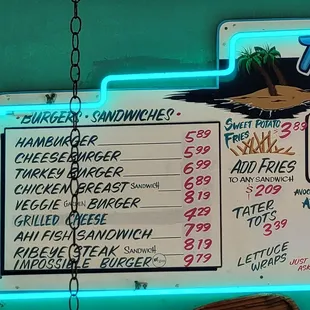 BURGERS · SANDWICHES ·
HAMBURGER 5.89
CHEESEBURGER 5.99
TURKEY BURGER 6.99
CHICKEN BREAST SANDWICH 6.89
VEGGIE GARDEN BURGER 8.19
GRILLED CHEESE 4.29
AHI FISH SANDWICH 7.99
RIBEYE STEAK SANDWICH 8.19
IMPOSSIBLE BURGER 9.79
SWEET POTATO
FRIES $3.89
ADD FRIES
TO ANY SANDWICH
$2.09
TATER
TOTS
$3.39
LETTUCE
WRAPS
JUST